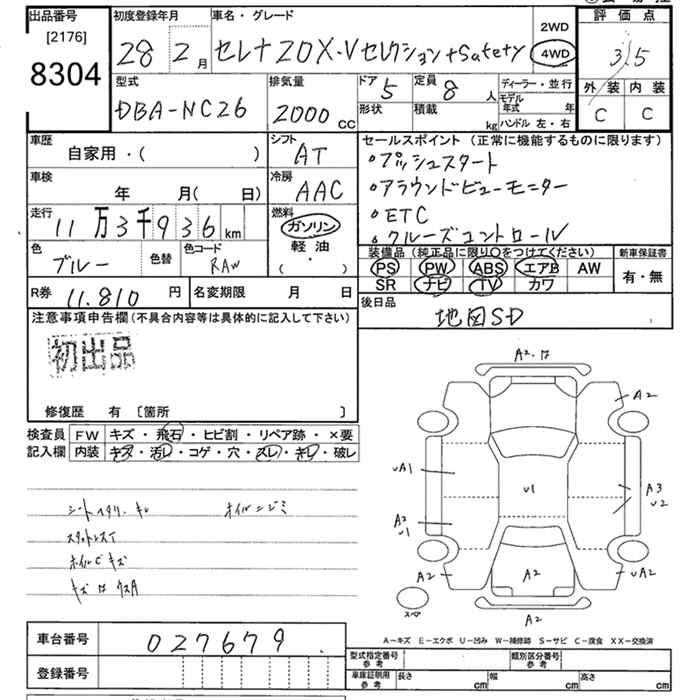 出品番号
[2176]
8304
初度登録年月
28 2月
車名・グレード
セレナ 20X.Vセレクション+Safety
2WD
4WD
評価点
3.5
外装 内装
C C
型式
DBA-NC26
排気量
2000 cc
ドア 5
形状
定員 8 人
積載 kg
ディーラー・並行
モデル年式 年
ハンドル 左・右
車歴
自家用・( )
シフト
AT
車検
年 月( 日)
冷房
AAC
走行
11万3千936km
燃料
ガソリン
軽油
( ・ )
色
ブルー
色替
色コード
RAW
R券 11.810 円
名変期限 月 日
セールスポイント (正常に機能するものに限ります)
・プッシュスタート
・アラウンドビューモニター
・ETC
・クルーズコントロール
装備品 (純正品に限り○をつけてください)
PS PW ABS エアB AW
SR ナビ TV カワ
新車保証書
有・無
後日品
地図SD
注意事項申告欄(不具合内容等は具体的に記入して下さい)
初出品
修復歴 有 [箇所 ]
検査員記入欄
FW キズ・飛石・ヒビ割・リペア跡・×要
内装 キズ・汚レ・コゲ・穴・スレ・キレ・破レ
シートヘタリ・キレ ホイルニジミ
ホイルCキズ
A2
A2
UA1
U1
A3
U2
A2
U1
A2
A2
UA2
A2
スペア
A-キズ E-エクボ U-凹み W-補修跡 S-サビ C-腐食 XX-交換済
車台番号
027679
登録番号
型式指定番号 参考
類別区分番号 参考
車庫証明用 参考 長さ cm 幅 cm 高さ cm